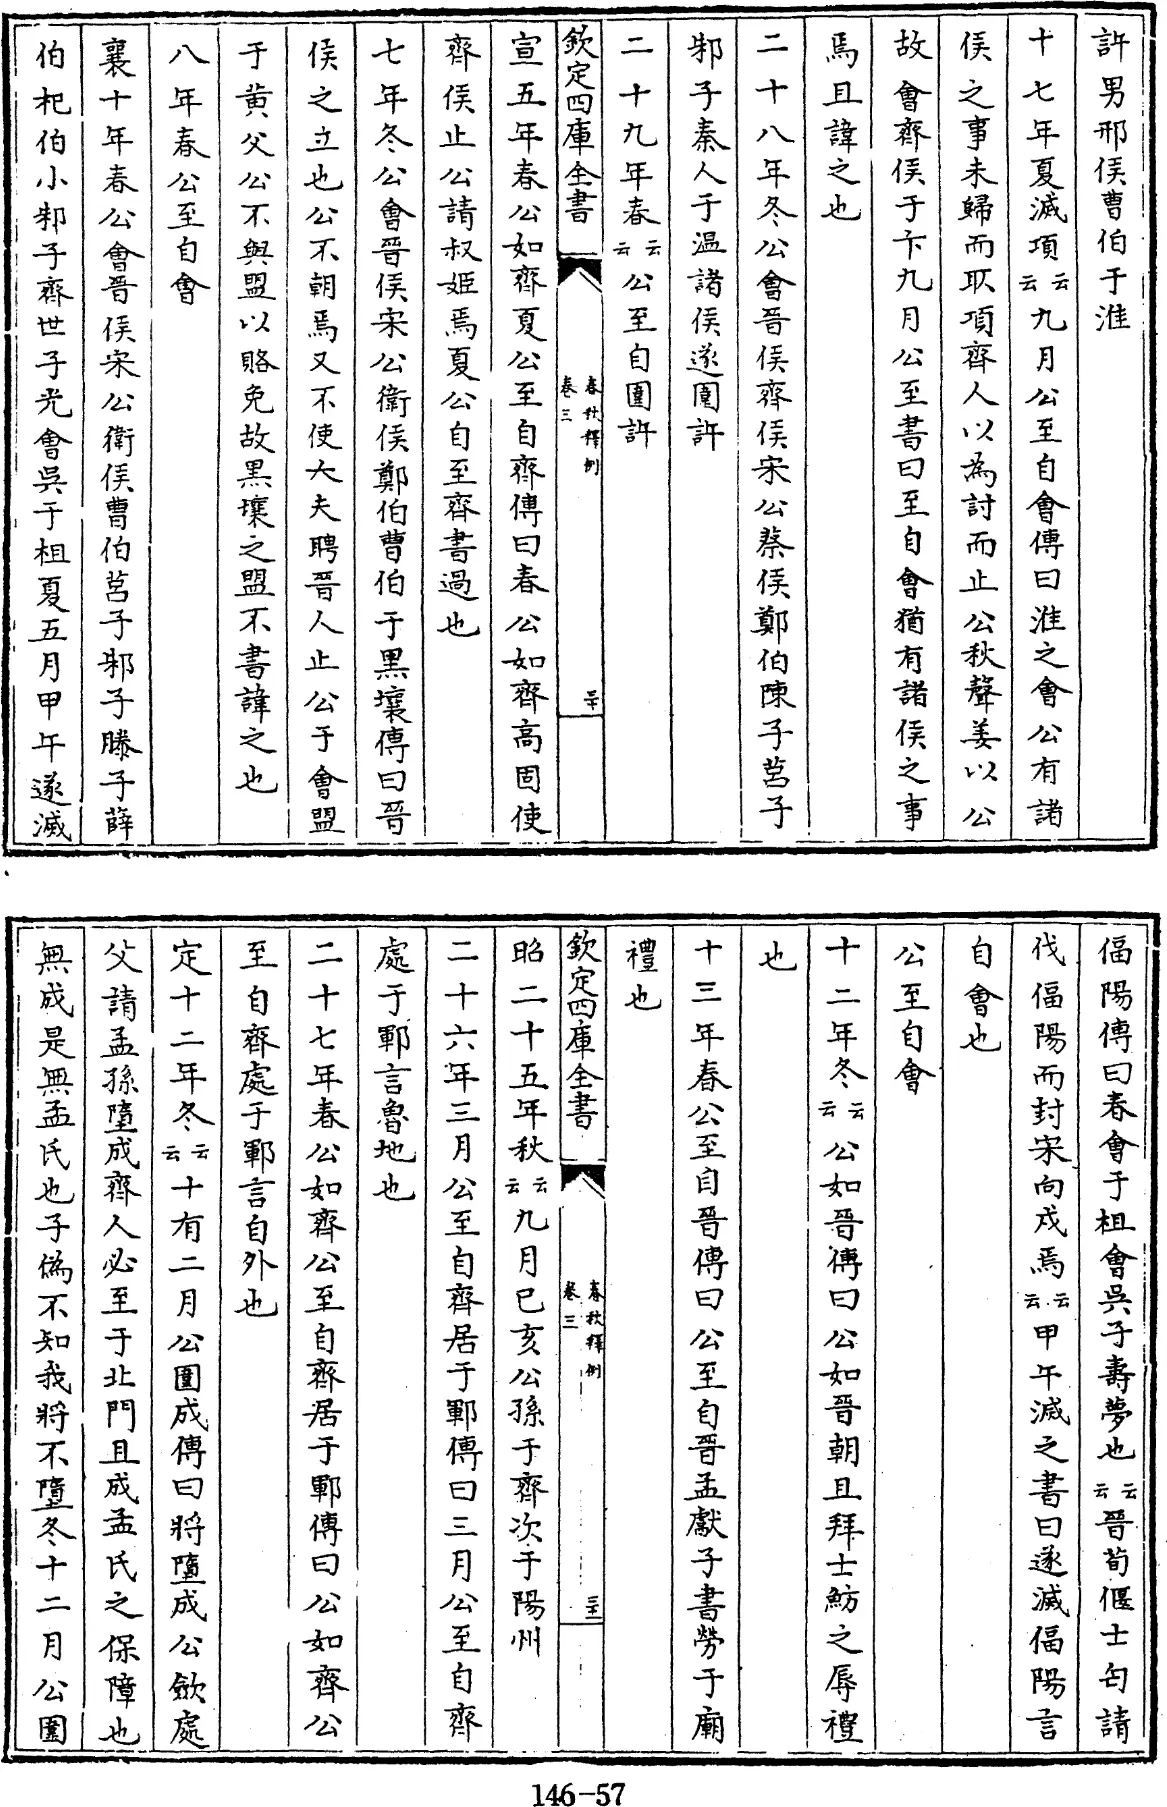 許男邢侯曹伯于淮
十七年夏滅項云云九月公至自會傳曰淮之會公有諸
侯之事未歸而取項齊人以為討而止公秋聲姜以公
故會齊侯于卞九月公至書曰至自會猶有諸侯之事
焉且諱之也
二十八年冬公會晉侯齊侯宋公蔡侯鄭伯陳子莒子
邾子秦人于溫諸侯遂圍許
二十九年春云云公至自圍許
欽定四庫全書
春秋釋例
卷三
三十
宣五年春公如齊夏公至自齊傳曰春公如齊高固使
齊侯止公請叔姬焉夏公自至齊書過也
七年冬公會晉侯宋公衛侯鄭伯曹伯于黑壤傳曰晉
侯之立也公不朝焉又不使大夫聘晉人止公于會盟
于黄父公不與盟以賂免故黑壤之盟不書諱之也
八年春公至自會
襄十年春公會晉侯宋公衛侯曹伯莒子邾子滕子薛
伯杞伯小邾子齊世子光會吳于柤夏五月甲午遂滅
偪陽傳曰春會于柤會吳子壽夢也云云晉荀偃士匄請
伐偪陽而封宋向戌焉云云甲午滅之書曰遂滅偪陽言
自會也
公至自會
十二年冬云云公如晉傳曰公如晉朝且拜士魴之辱禮
也
十三年春公至自晉傳曰公至自晉孟獻子書勞于廟
禮也
欽定四庫全書
春秋釋例
卷三
三十一
昭二十五年秋云云九月己亥公孫于齊次于陽州
二十六年三月公至自齊居于鄆傳曰三月公至自齊
處于鄆言魯地也
二十七年春公如齊公至自齊居于鄆傳曰公如齊公
至自齊處于鄆言自外也
定十二年冬云云十有二月公圍成傳曰將墮成公斂處
父請孟孫墮成齊人必至于北門且成孟氏之保障也
無成是無孟氏也子偽不知我將不墮冬十二月公圍
146-57